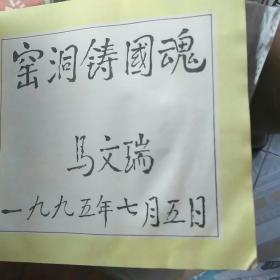 窑洞铸國魂
马文瑞
一九九五年七月五日